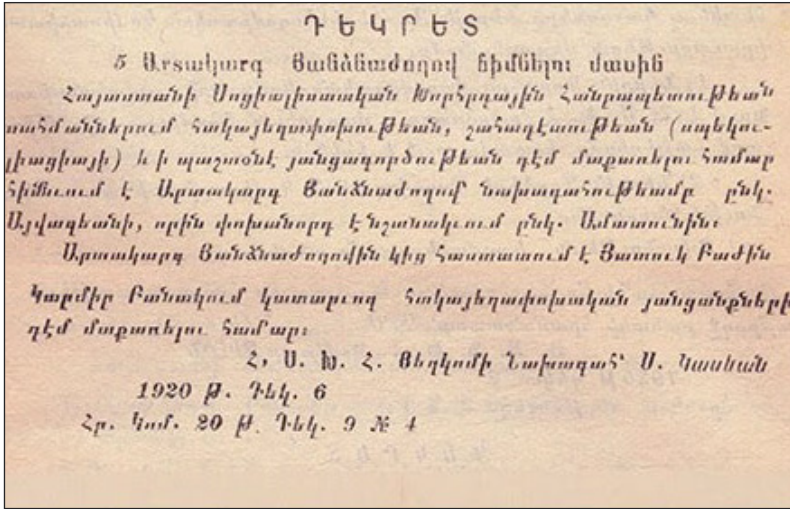 ԴԵԿՐԵՏ
5 Արտակարգ Յանձնաժողով հիմնելու մասին
Հայաստանի Սոցիալիստական Խորհրդային Հանրապետութեան
սահմաններում հակայեղափոխութեան, շահադիտութեան (սպեկու-
լիացիայի) և ի պաշտօնէ յանցագործութեան դէմ մաքառելու համար
հիմնւում է Արտակարգ Յանձնաժողով նախագահութեամբ ընկ.
Այվազեանի, որին փոխանորդ է նշանակւում ընկ. Ամատունին։
Արտակարգ Յանձնաժողովին կից հաստատւում է Յատուկ Բաժին
Կարմիր Բանակում կատարւող հակայեղափոխական յանցանքների
դէմ մաքառելու համար։
Հ. Ս. Խ. Հ. Յեղկոմի Նախագահ՝ Ս. Կասեան
1920 թ. Դեկ. 6
Հր. Կոմ. 20 թ. Դեկ. 9 № 4